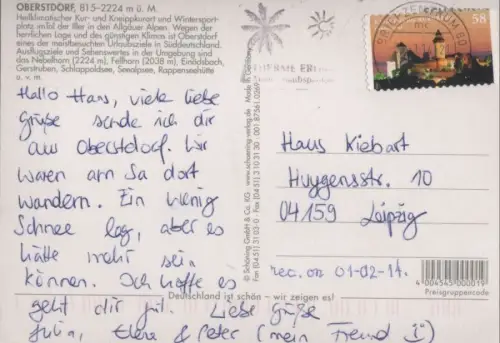 OBERSTDORF, 815-2224 m ü. M.
Heilklimatischer Kur- und Kneippkurort und Wintersport-
platz, im Tal der Iller in den Allgäuer Alpen. Wegen der
herrlichen Lage und des günstigen Klimas ist Oberstdorf
eines der meistbesuchten Urlaubsziele in Süddeutschland.
Ausflugsziele und Sehenswertes in der Umgebung sind
das Nebelhorn (2224 m), Fellhorn (2038 m), Einödsbach,
Gerstruben, Schlappoldsee, Seealpsee, Rappenseehütte
u. v. m.
Hallo Hans, viele liebe
Grüße sende ich dir
aus Oberstdorf. Wir
waren am Sa dort
wandern. Ein wenig
Schnee lag, aber es
hätte mehr sein
können. Ich hoffe es
geht dir gut. Liebe Grüße
Julia, & Peter (mein Freund
Deutschland ist schön – wir zeigen es!
© Schöning GmbH & Co. KG · www.schoening-verlag.de · Made in
Fax (04 51) 3 10 31 30
58
BRIEFZENTRUM
Hans Kiebart
Huygensstr. 10
04159 Leipzig
rec. on 01-02-14.
4 004545 000019
Preisgruppencode